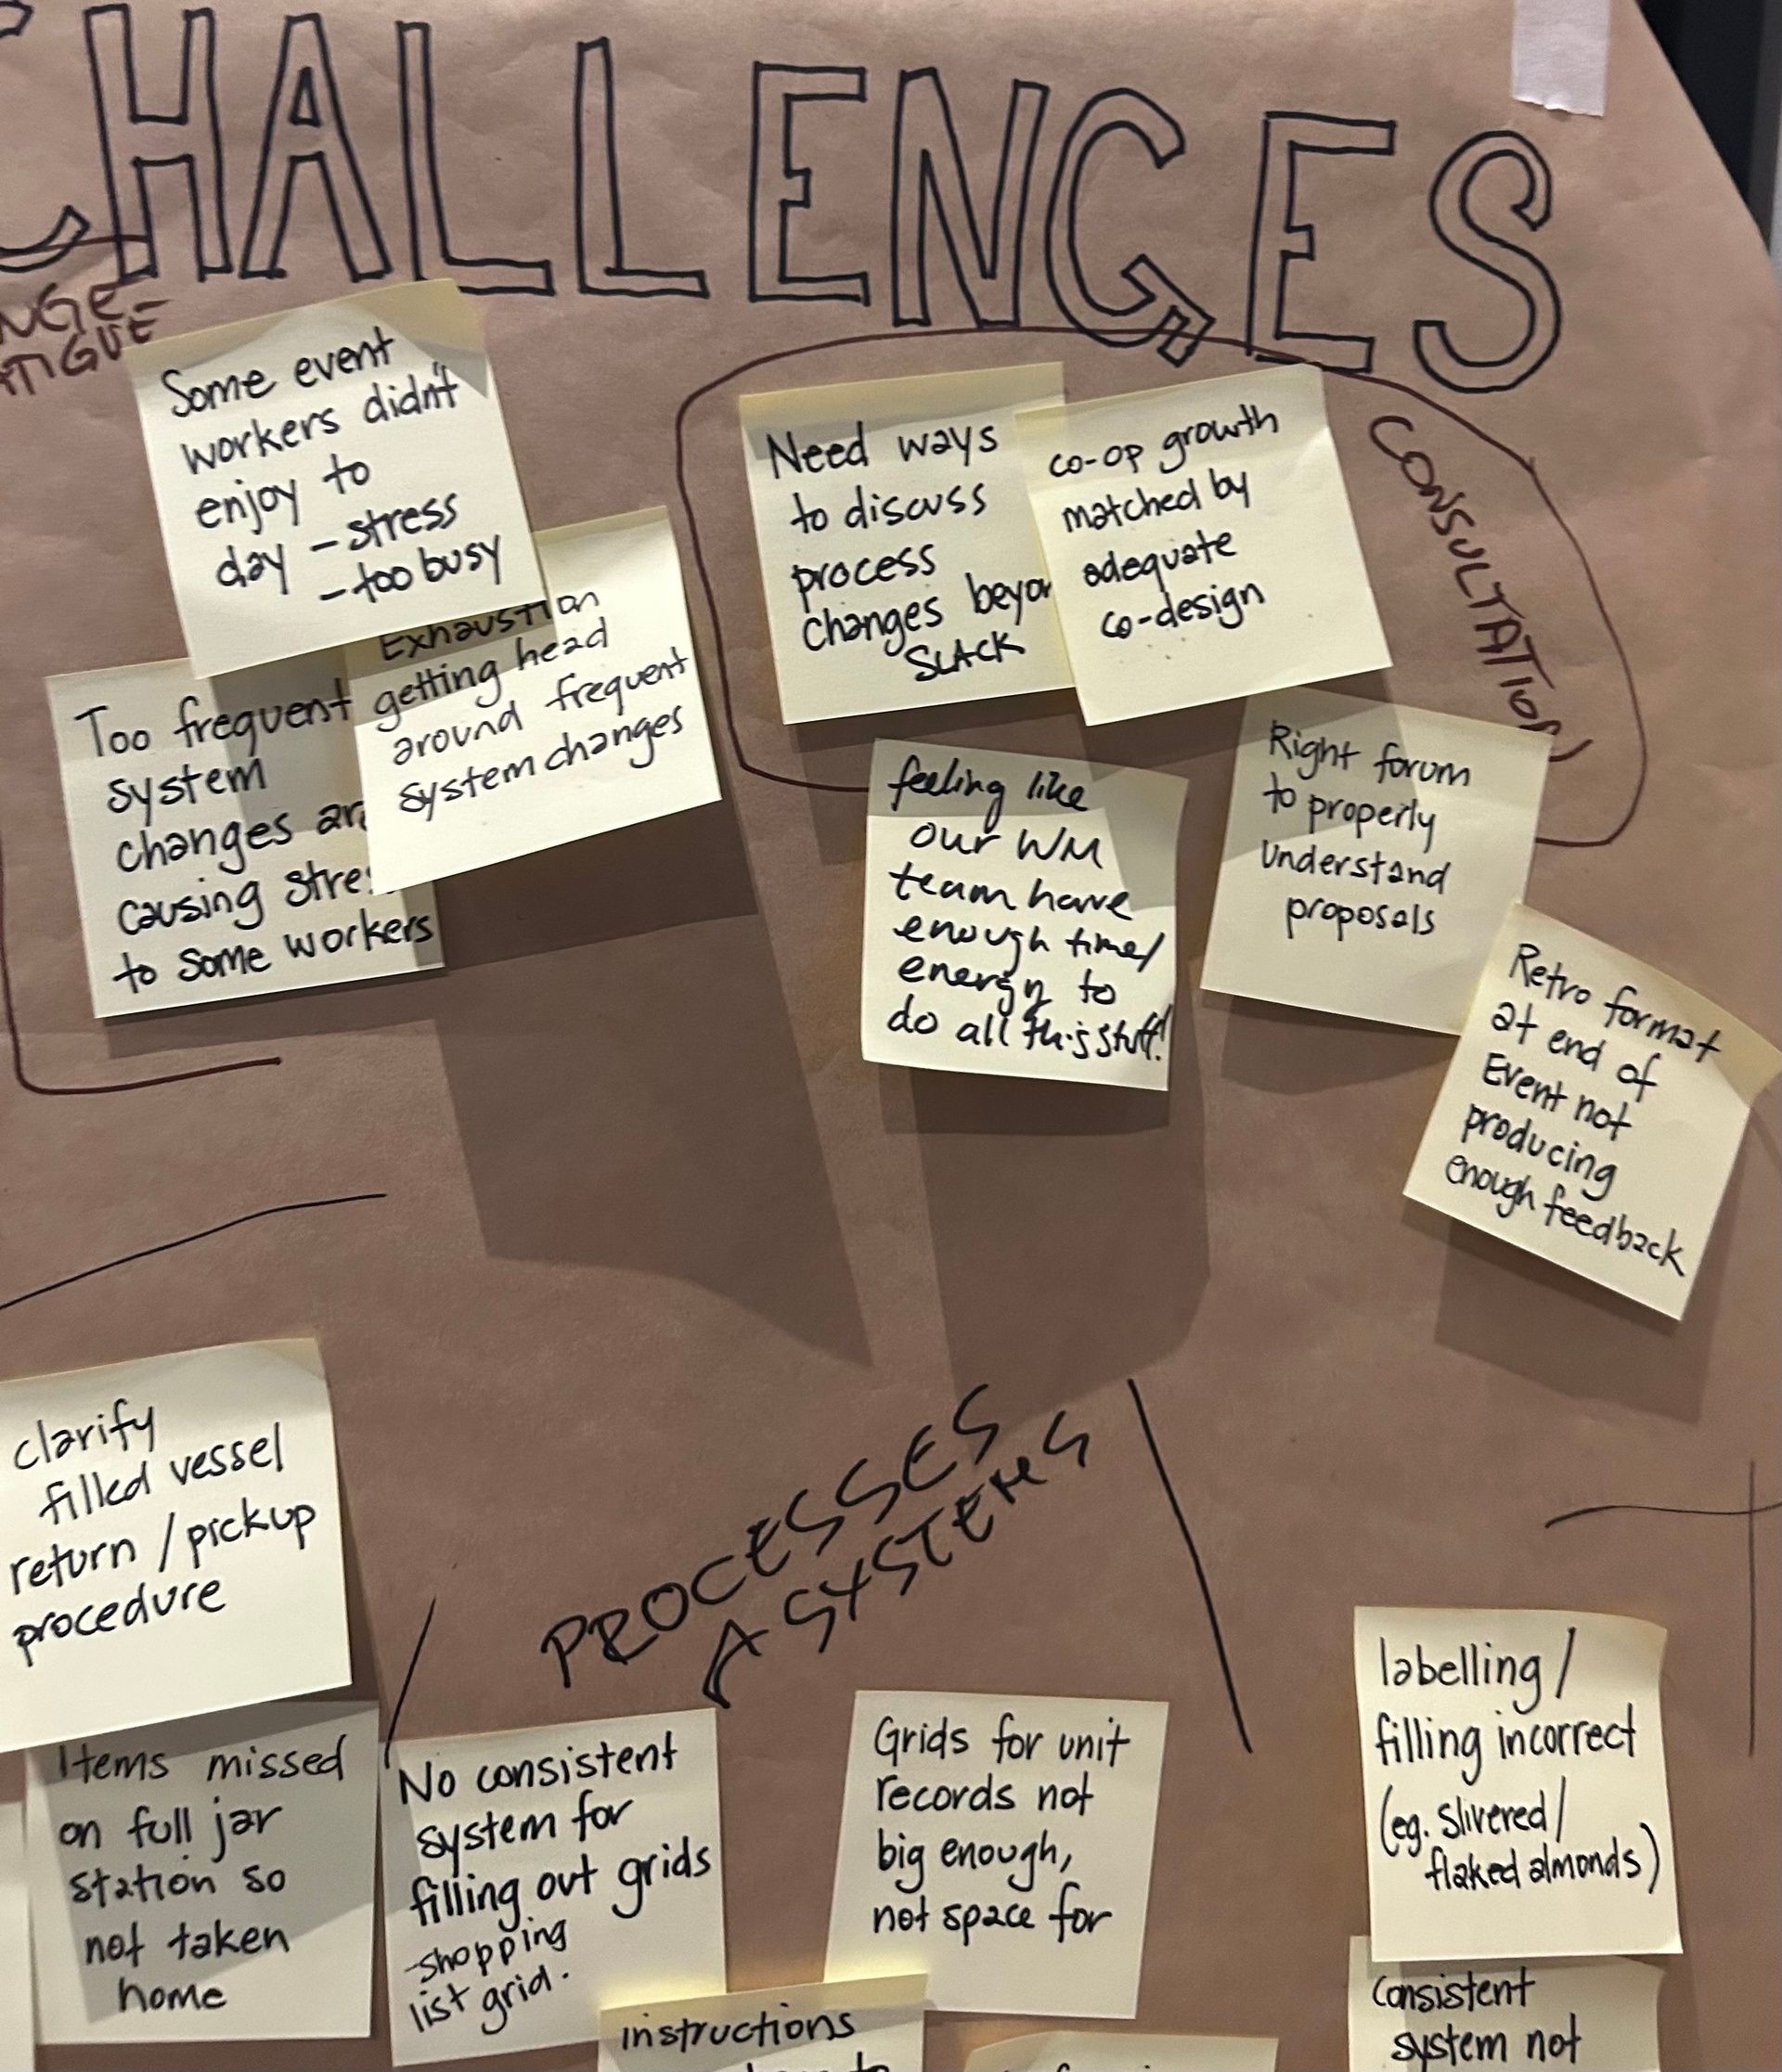 CHALLENGES
Some event
workers didn't
enjoy to
day - stress
- too busy
Exhaustion
getting head
around frequent
system changes
Too frequent
system
changes
causing
to some workers
CONSULTATION
Need ways
to discuss
process
changes
SLACK
co-op growth
matched by
adequate
co-design
feeling like
our WM
team have
enough time/
energy to
do all this stuff!
Right forum
to properly
understand
proposals
Retro format
at end of
Event not
producing
enough feedback
PROCESSES
SYSTEMS
clarify
filled vessel
return / pickup
procedure
Items missed
on full jar
station so
not taken
home
No consistent
system for
filling out grids
-shopping
list grid.
Grids for unit
records not
big enough,
not space for
instructions
labelling /
filling incorrect
(eg. slivered /
flaked almonds)
Consistent
system not